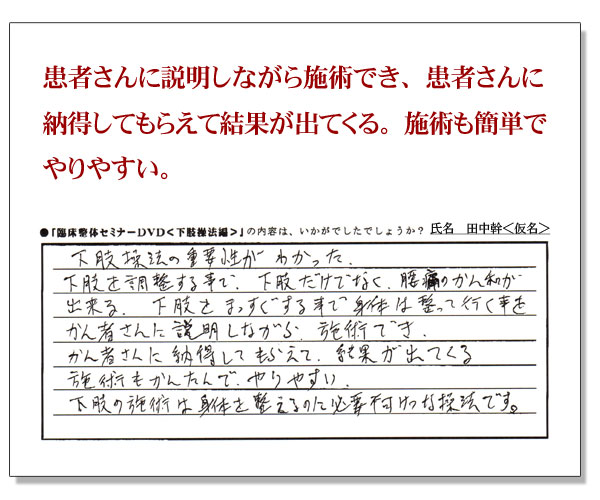 患者さんに説明しながら施術でき、患者さんに
納得してもらえて結果が出てくる。施術も簡単で
やりやすい。
●「臨床整体セミナーDVD<下肢操法編>」の内容は、いかがでしたでしょうか? 氏名 田中幹<仮名>
下肢操法の重要性がわかった。
下肢を調整する事で、下肢だけでなく、腰痛のかん和が
出来る。下肢をまっすぐする事で身体は整って行く事を
かん者さんに説明しながら、施術でき、
かん者さんに納得してもらえて、結果が出てくる
施術もかんたんで、やりやすい。
下肢の施術は身体を整えるのに必要不可けつな操法です。